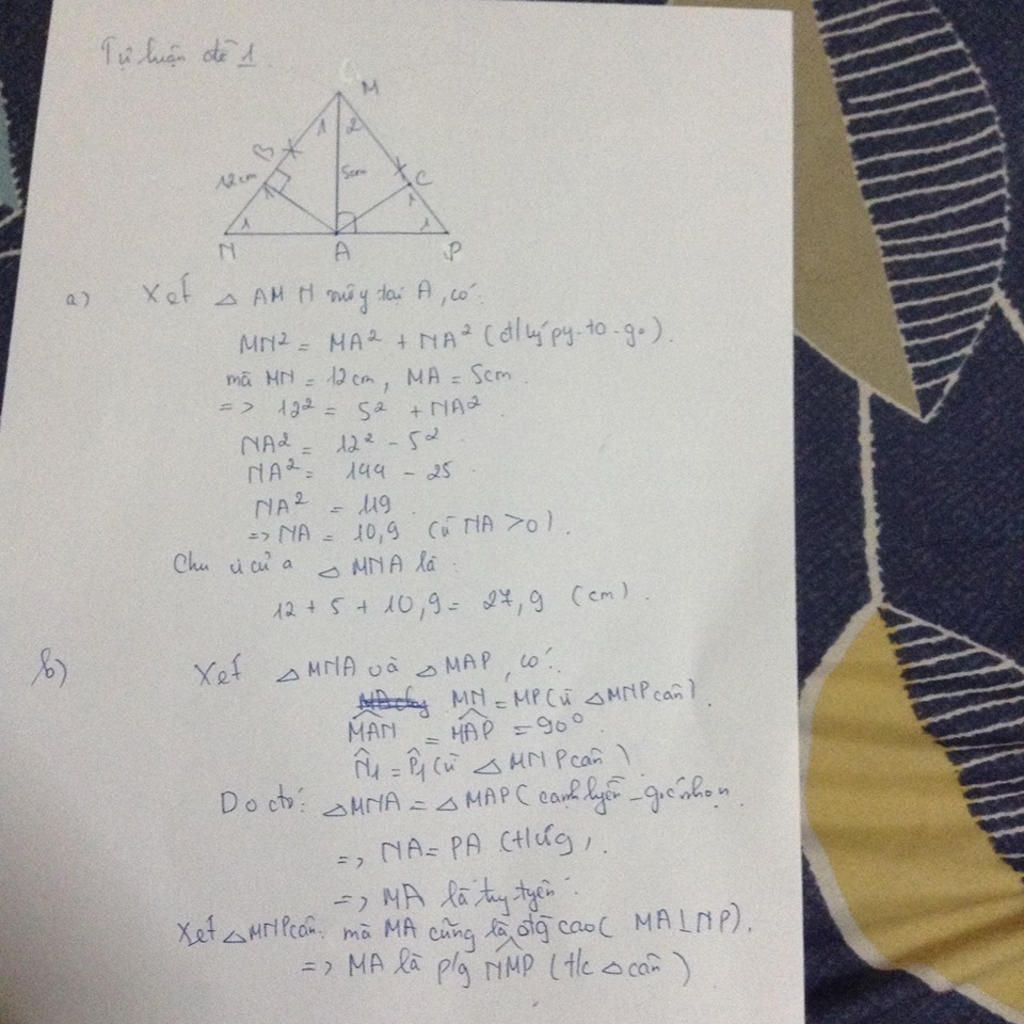 Tự luận đề 1.
M
1 2
B
12cm 5cm C
1
1 1
N A P
a) Xét △ AMN vuông tại A, có:
MN² = MA² + NA² (đ/lý py-ta-go).
mà MN = 12cm, MA = 5cm.
=> 12² = 5² + NA²
NA² = 12² - 5²
NA² = 144 - 25
NA² = 119
=> NA = 10,9 (vì NA > 0).
Chu vi của △ MNA là:
12 + 5 + 10,9 = 27,9 (cm).
b) Xét △MNA và △MAP, có:
MN = MP (vì △MNP cân).
M̂AN = M̂AP = 90°
N̂1 = P̂1 (vì △MNP cân)
Do đó: △MNA = △MAP (cạnh huyền - góc nhọn
=> NA = PA (t/ứng).
=> MA là trung tuyến.
Xét △MNP cân: mà MA cũng là đg cao (MA⊥NP).
=> MA là p/g N̂MP (t/c △ cân)